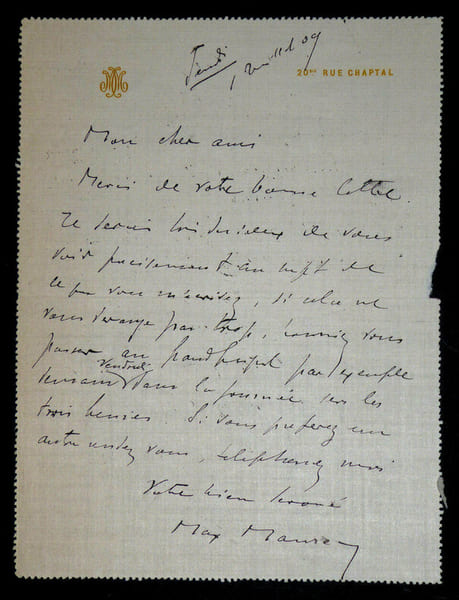 Jeudi
1 Juillet 09
20BIS RUE CHAPTAL
Mon cher ami
Merci de votre bonne lettre.
Je serais très désireux de vous
voir précisément au sujet de
ce que vous m'écrivez, si cela ne
vous dérange pas trop, pourriez vous
passer au Grand Guignol par exemple
Vendredi
dans la journée vers les
trois heures. Si vous préférez un
autre rendez vous, téléphonez moi
Votre bien dévoué
Max Maurey